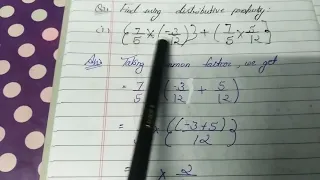 Find using distributive property:
{7/5 × (-3/12)} + {7/5 × 5/12}
Ans: Taking common factor, we get
= 7/5 (-3/12 + 5/12)
= × {(-3+5)/12}
× 2